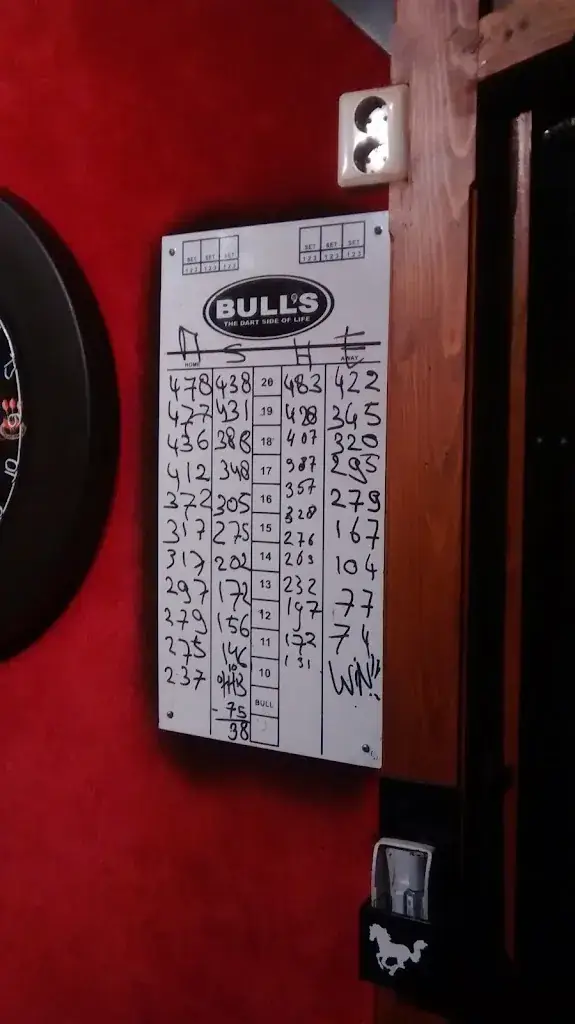 SET SET SET SET SET SET
1 2 3 1 2 3 1 2 3 1 2 3 1 2 3 1 2 3
BULL'S
THE DART SIDE OF LIFE
S H t
HOME AWAY
478 438 20 483 422
477 431 19 428 345
436 388 18 407 320
412 348 17 387 295
372 305 16 357 279
317 275 15 328 167
317 202 14 276 104
297 172 13 263 77
279 156 12 232 74
275 146 11 197 WiN!!
237 10 172
BULL 131
- 75
38
10